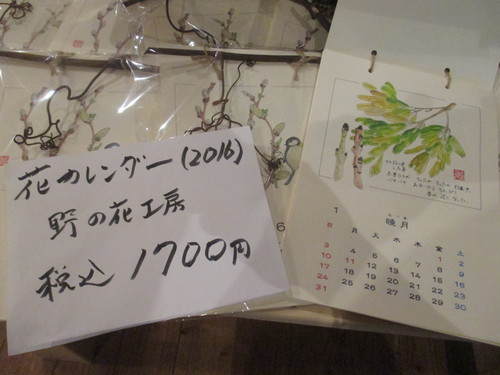 花カレンダー(2016)
野の花工房
税込 1700円
1 睦月
日 月 火 水 木 金 土
1 2
3 4 5 6 7 8 9
10 11 12 13 14 15 16
17 18 19 20 21 22 23
24 25 26 27 28 29 30
31